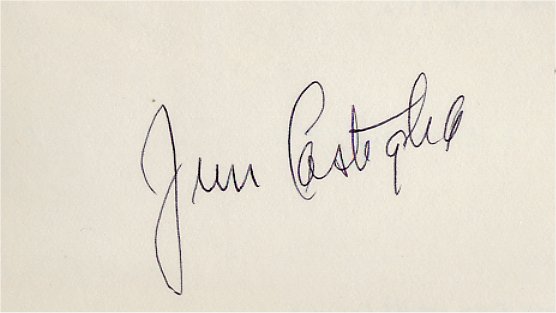 Jim Castiglia